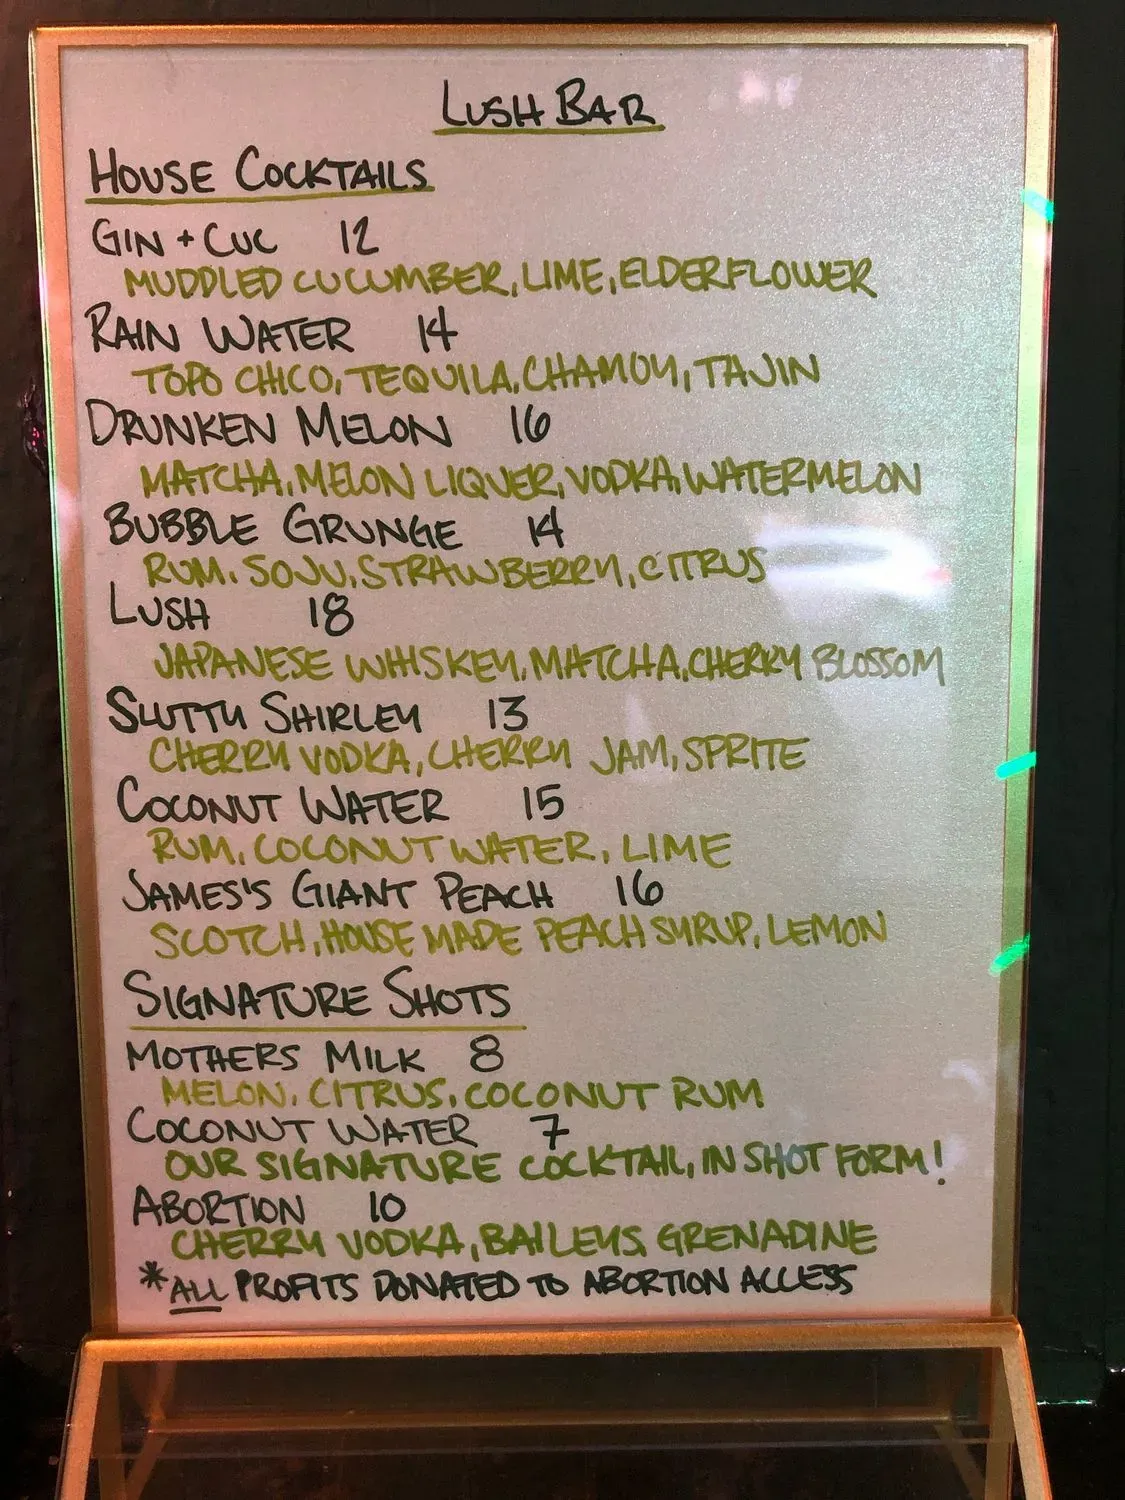 LUSH BAR
HOUSE COCKTAILS
GIN + CUC 12
MUDDLED CUCUMBER, LIME, ELDERFLOWER
RAIN WATER 14
TOPO CHICO, TEQUILA, CHAMOY, TAJIN
DRUNKEN MELON 16
MATCHA, MELON LIQUER, VODKA, WATERMELON
BUBBLE GRUNGE 14
RUM, SOJU, STRAWBERRY, CITRUS
LUSH 18
JAPANESE WHISKEY, MATCHA, CHERRY BLOSSOM
SLUTTY SHIRLEY 13
CHERRY VODKA, CHERRY JAM, SPRITE
COCONUT WATER 15
RUM, COCONUT WATER, LIME
JAMES'S GIANT PEACH 16
SCOTCH, HOUSE MADE PEACH SYRUP, LEMON
SIGNATURE SHOTS
MOTHERS MILK 8
MELON, CITRUS, COCONUT RUM
COCONUT WATER 7
OUR SIGNATURE COCKTAIL, IN SHOT FORM!
ABORTION 10
CHERRY VODKA, BAILEYS, GRENADINE
*ALL PROFITS DONATED TO ABORTION ACCESS